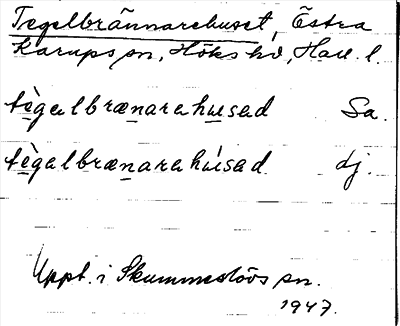 Tegelbrännarehuset, Östra
Karups sn, Höks hd, Hall. l.
tègalbrænarahusad Sa.
tègalbrænarahúsad dj.
Uppt. i Skummeslövs sn.
1947.